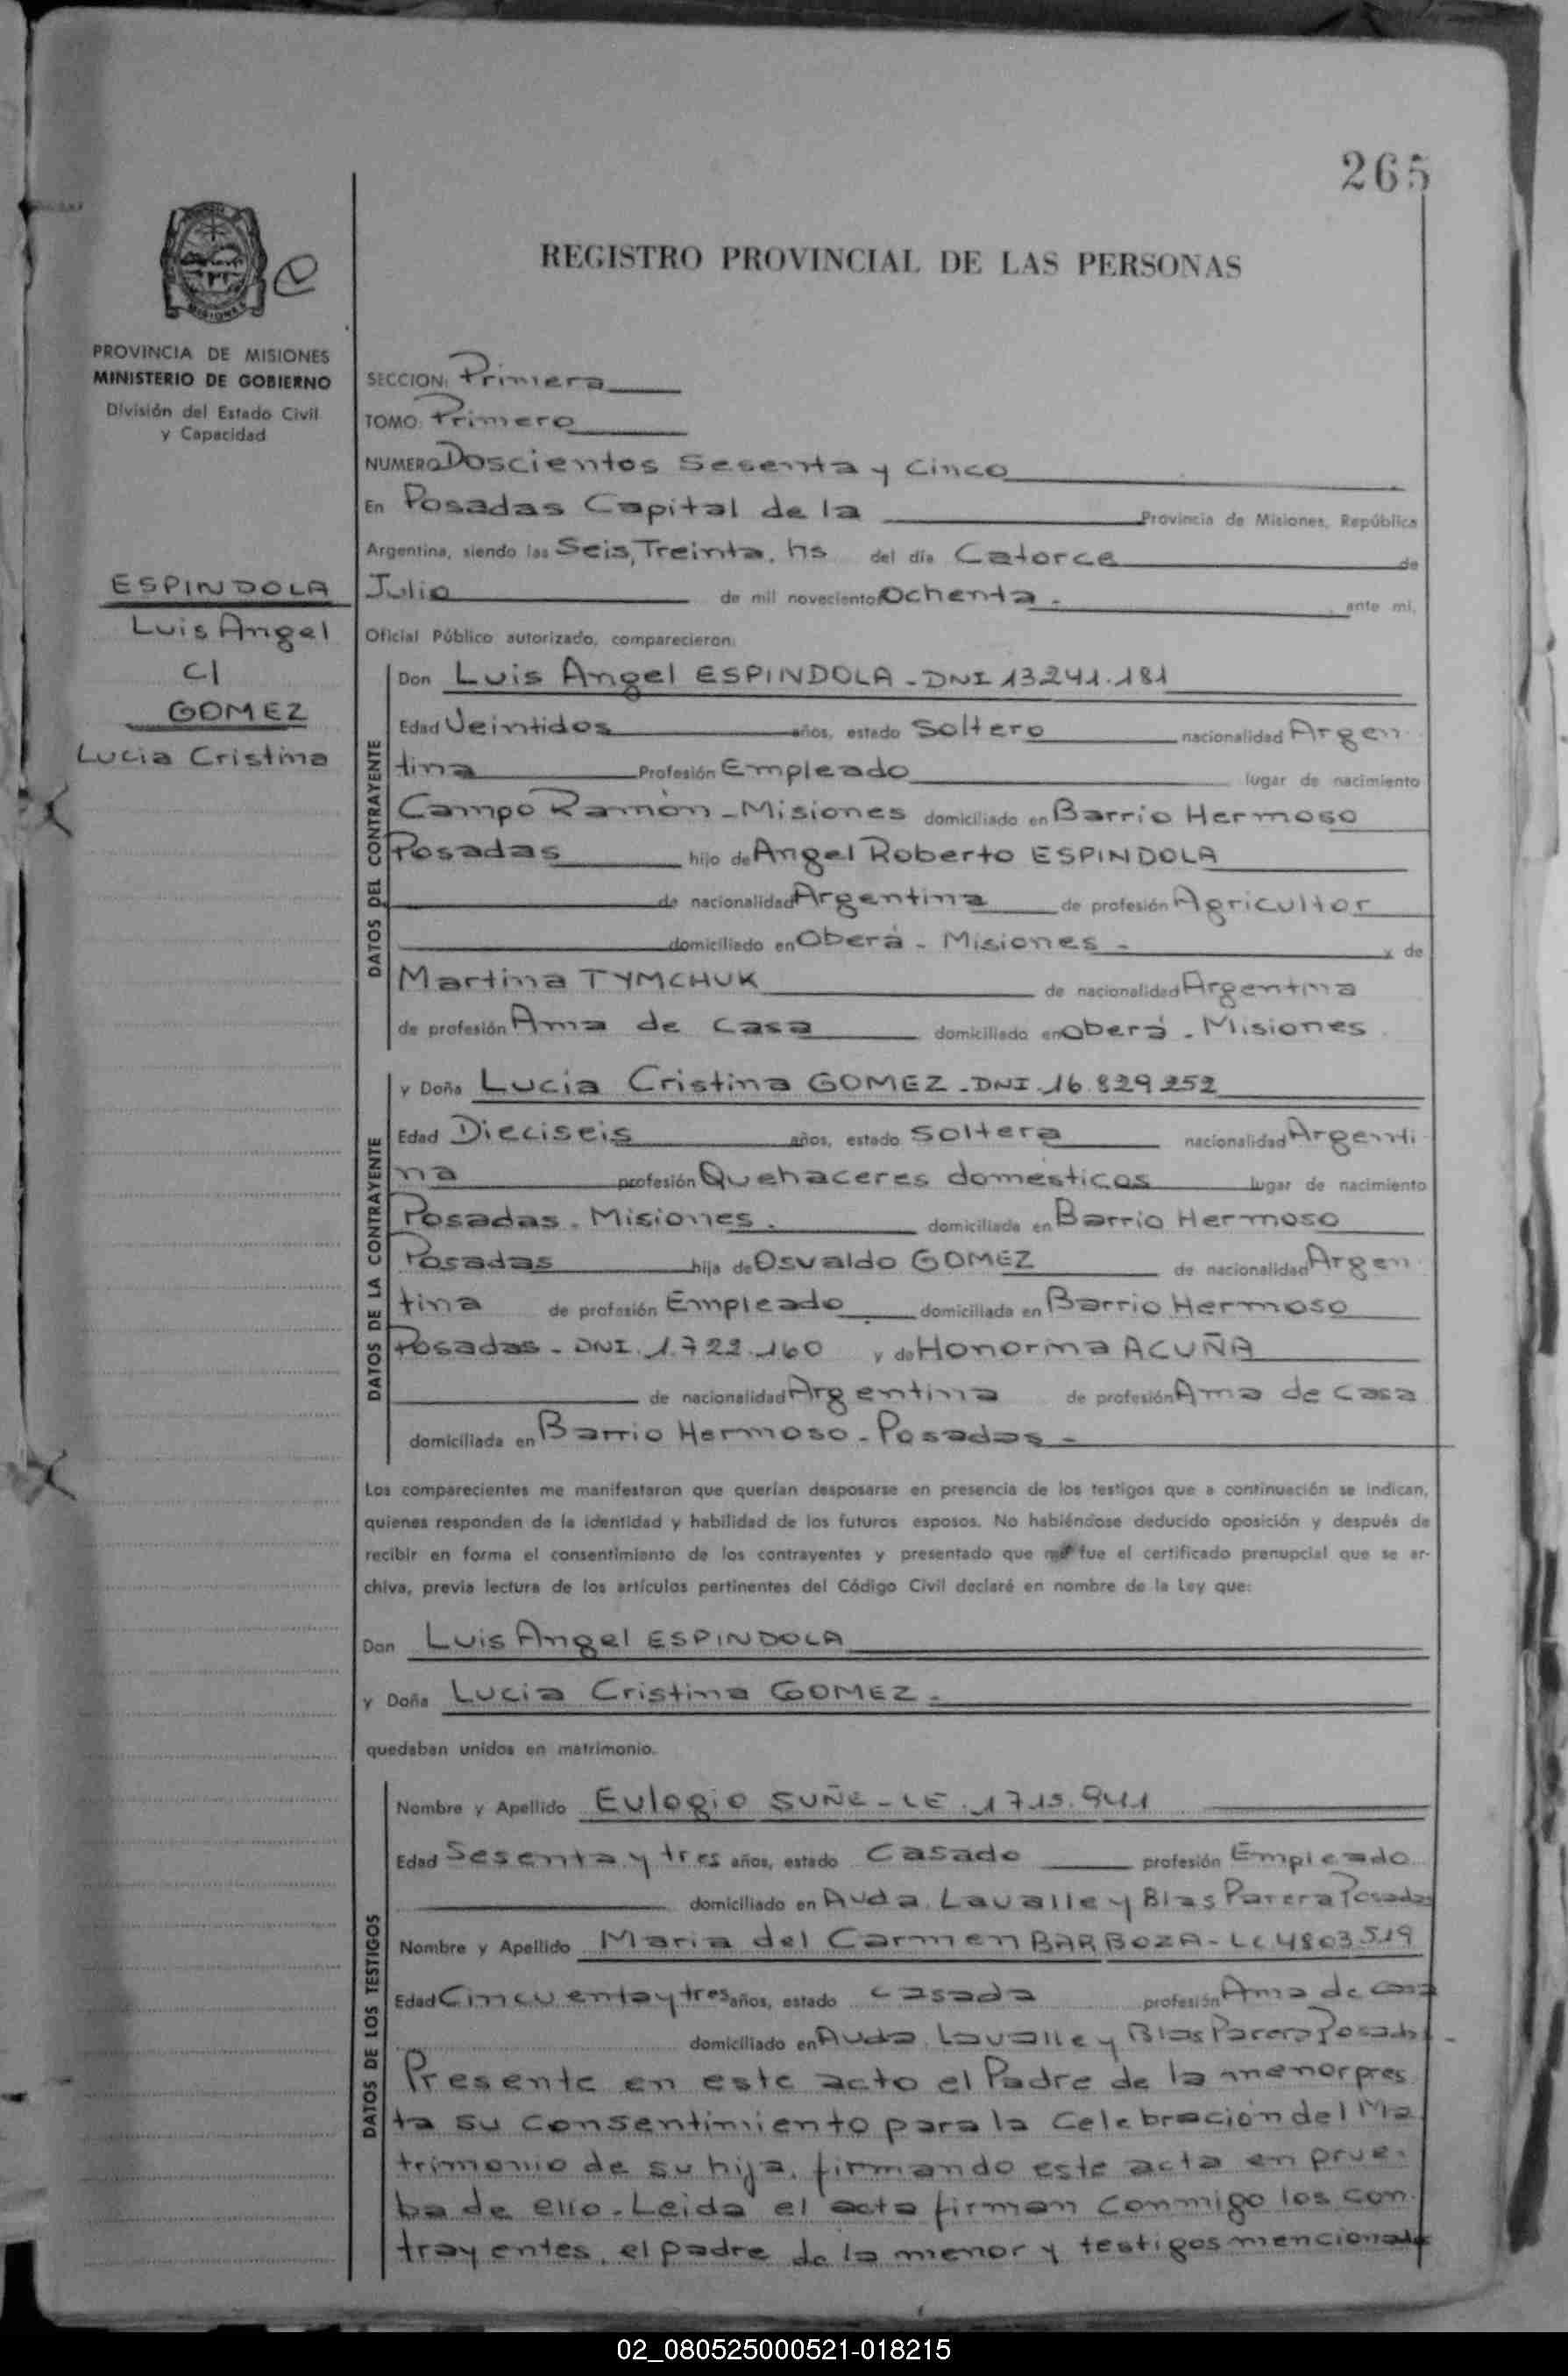 265
REGISTRO PROVINCIAL DE LAS PERSONAS
MISIONES
PROVINCIA DE MISIONES
MINISTERIO DE GOBIERNO
División del Estado Civil
y Capacidad
ESPINDOLA
Luis Angel
C/
GOMEZ
Lucia Cristina
SECCION: Primera
TOMO: Primero
NUMERO Doscientos Sesenta y Cinco
En Posadas Capital de la Provincia de Misiones, República
Argentina, siendo las Seis, Treinta. hs del día Catorce de
Julio de mil novecientos Ochenta. ante mí,
Oficial Público autorizado, comparecieron:
DATOS DEL CONTRAYENTE
Don Luis Angel ESPINDOLA - DNI 13241.181
Edad Veintidos años, estado Soltero nacionalidad Argen
tina Profesión Empleado lugar de nacimiento
Campo Ramón - Misiones domiciliado en Barrio Hermoso
Posadas hijo de Angel Roberto ESPINDOLA
de nacionalidad Argentina de profesión Agricultor
domiciliado en Oberá - Misiones - y de
Martina TYMCHUK de nacionalidad Argentina
de profesión Ama de casa domiciliado en Oberá - Misiones
DATOS DE LA CONTRAYENTE
y Doña Lucia Cristina GOMEZ - DNI. 16.829252
Edad Dieciseis años, estado Soltera nacionalidad Argenti
na profesión Quehaceres domésticos lugar de nacimiento
Posadas. Misiones. domiciliada en Barrio Hermoso
Posadas hija de Osvaldo GOMEZ de nacionalidad Argen
tina de profesión Empleado domiciliada en Barrio Hermoso
Posadas - DNI. 1.722.160 y de Honorma ACUÑA
de nacionalidad Argentina de profesión Ama de casa
domiciliada en Barrio Hermoso - Posadas -
Los comparecientes me manifestaron que querían desposarse en presencia de los testigos que a continuación se indican,
quienes responden de la identidad y habilidad de los futuros esposos. No habiéndose deducido oposición y después de
recibir en forma el consentimiento de los contrayentes y presentado que fue el certificado prenupcial que se ar-
chiva, previa lectura de los artículos pertinentes del Código Civil declaré en nombre de la Ley que:
Don Luis Angel ESPINDOLA
y Doña Lucia Cristina GOMEZ -
quedaban unidos en matrimonio.
DATOS DE LOS TESTIGOS
Nombre y Apellido Eulogio SUÑE - LE. 1715.941
Edad Sesenta y tres años, estado Casado profesión Empleado
domiciliado en Avda. Lavalle y Blas Parera Posadas
Nombre y Apellido Maria del Carmen BARBOZA - LC 4803519
Edad Cincuenta y tres años, estado casada profesión Ama de casa
domiciliado en Avda. Lavalle y Blas Parera Posadas -
Presente en este acto el Padre de la menor pres
ta su consentimiento para la celebración del Ma
trimonio de su hija, firmando este acta en prue-
ba de ello - Leida el acta firman conmigo los con-
trayentes, el padre de la menor y testigos mencionados
02_080525000521-018215